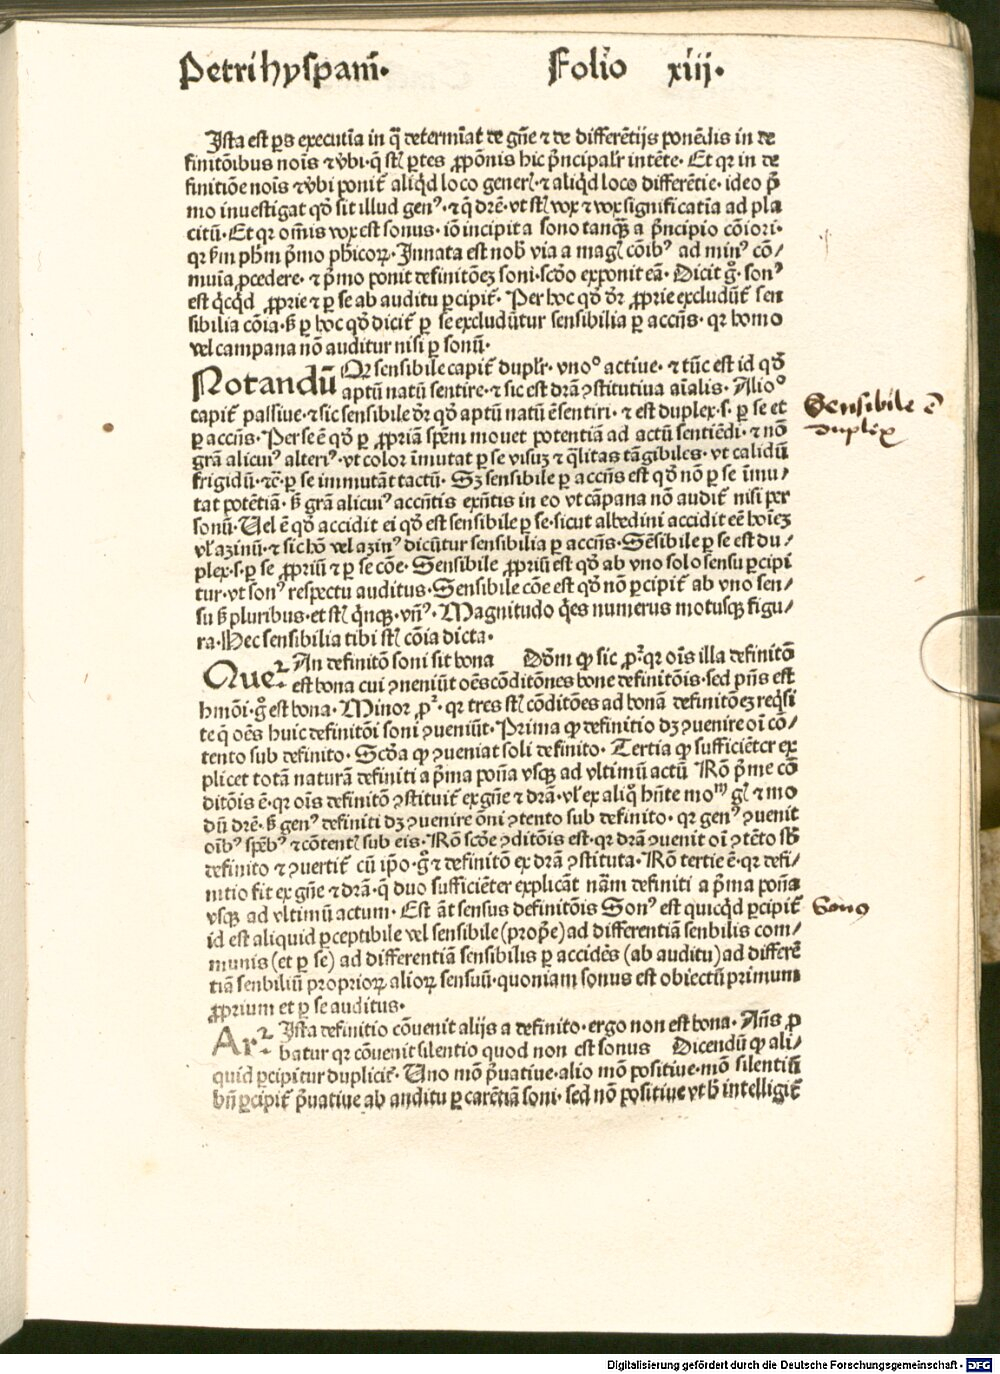 Petri hyspani. Folio xiij.
Ista est ps̄ executiua in q̄ determīat de gn̄e ⁊ de differētijs ponēdis in de
finitōibus nois ⁊ v̄bi. q̄ sūt ꝑtes ꝓpōnis hic pⁿcipalr̄ intēte. Et qꝛ in de
finitiōe nois ⁊ v̄bi ponit̄ aliq̇d loco generꝭ. ⁊ aliq̇d loco differētie. ideo p̄
mo inuestigat qd̄ sit illud genꝰ. ⁊ q̄ dr̄ē. vt sūt vox ⁊ vox significatīa ad pla
citū. Et qꝛ om̄is vox est sonus. iō incipit a sono tanqꝫ a pⁿcipio cōiori.
qꝛ ẜm ph̄m p̄mo phicoꝝ. Innata est nob̄ via a magꝭ cōibꝰ ad minꝰ cō⸗
muia ꝓcedere. ⁊ p̄mo ponit definitōeꝫ soni. scd̄o exponit eā. Dicit g̊. sonꝰ
est q̇cq̇d ꝓprie ⁊ ꝑ se ab auditu ꝑcipit̄. Per hoc qd̄ dr̄ ꝓprie excludūt̄ sen
sibilia cōia. ẜꝫ ꝑ hoc qd̄ dicit̄ ꝑ se excludūtur sensibilia ꝑ accn̄s. qꝛ homo
vel campana nō auditur nisi ꝑ sonū.
Notandū Qꝛ sensibile capit̄ duplr̄. vnoº actiue. ⁊ tūc est id qd̄
aptū natū sentire. ⁊ sic est dr̄a ꝯstitutiua aīalis. Alioº
capit̄ passiue. ⁊ sic sensibile dr̄ qd̄ aptū natū ē sentiri. ⁊ est duplex. s. ꝑ se et
ꝑ accn̄s. Per se ē qd̄ ꝑ ꝓpriā spēm mouet potentiā ad actū sentiēdi. ⁊ nō
gr̄a alicuiꝰ alteriꝰ. vt color īmutat ꝑ se visuꝫ ⁊ q̄litas tāgibiles. vt calidū
frigidū. ⁊c̄. ꝑ se immutāt tactū. Sꝫ sensibile ꝑ accn̄s est qd̄ nō ꝑ se īmu⸗
tat potētiā. ẜꝫ gr̄a alicuiꝰ accn̄tis exn̄tis in eo vt cāpana nō audit̄ nisi per
sonū. Uel ē qd̄ accidit ei qd̄ est sensibile ꝑ se. sicut albedini accidit eē hoīeꝫ
vl̄ azinū. ⁊ sic hō vel azinꝰ dicūtur sensibilia ꝑ accn̄s. Sēsibile ꝑ se est du⸗
plex. s. ꝑ se ꝓpriū ⁊ ꝑ se cōe. Sensibile ꝓpriū est qd̄ ab vno solo sensu ꝑcipi
tur. vt sonꝰ respectu auditus. Sensibile cōe est qd̄ nō ꝑcipit̄ ab vno sen⸗
su ẜꝫ pluribus. et sūt q̇nqꝫ. vn̄ꝰ. Magnitudo q̇es numerus motusqꝫ figu⸗
ra. Hec sensibilia tibi sūt cōia dicta.
Querꝭ. An definitō soni sit bona Dd̄m ꝙ sic ꝓ². qꝛ oīs illa definitō
est bona cui ꝯueniūt oēs cōditōnes bone definitōis. sed pn̄s est
hmōi. g̊ est bona. Minor ꝓ². qꝛ tres sūt cōditōes ad bonā definitōeꝫ req̇si
te q̄ oēs huic definitōi soni ꝯueniūt. Prima ꝙ definitio dꝫ ꝯuenire oī cō⸗
tento sub definito. Scd̄a ꝙ ꝯueniat soli definito. Tertia ꝙ sufficiēter ex
plicet totā naturā definiti a p̄ma pon̄a vsqꝫ ad vltimū actū Rō p̄me cō
ditōis ē. qꝛ oīs definitō ꝯstituit̄ ex gn̄e ⁊ dr̄a. vl̄ ex aliq̇ hn̄te moᵐ gꝭ ⁊ mo
dū dr̄ē. ẜꝫ genꝰ definiti dꝫ ꝯuenire ōni ꝯtento sub definito. qꝛ genꝰ ꝯuenit
oībꝰ spēbꝰ ⁊ cōtentꝭ sub eis. Rō scd̄e ꝯditōis est. qꝛ dr̄a ꝯuenit oī ꝯtēto sb̄
definito ⁊ ꝯuertit̄ cū ip̄o. g̊ ⁊ definitō ex dr̄a ꝯstituta. Rō tertie ē. qꝛ defi⸗
nitio fit ex gn̄e ⁊ dr̄a. q̄ duo sufficiēter explicāt nām definiti a p̄ma pon̄a
vsqꝫ ad vltimū actum. Est āt sensus definitōis Sonꝰ est quicq̇d ꝑcipit̄
id est aliquid ꝑceptibile vel sensibile (prop̄e) ad differentiā senbilis com⸗
munis (et ꝑ se) ad differentiā sensibilis ꝑ accidēs (ab auditu) ad differē
tiā senbiliū proprioꝝ alioꝝ sensuū. quoniam sonus est obiectū primum
ꝓprium et ꝑ se auditus.
Arꝛ. Ista definitio cōuenit alijs a definito. ergo non est bona. An̄s ꝓ
batur qꝛ cōuenit silentio quod non est sonus Dicendū ꝙ ali⸗
quid ꝑcipitur duplicit̄. Uno mō p̄uatiue. alio mō positiue. mō silentiū
bn̄ ꝑcipit̄ p̄uatiue ab auditu ꝑ carētiā soni. sed nō positiue vt h̄ intelligit̄
Sensibile ē
duplex
Sonꝰ
Digitalisierung gefördert durch die Deutsche Forschungsgemeinschaft - DFG